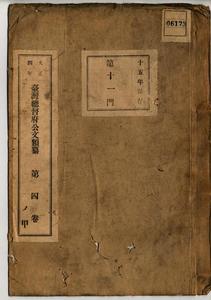 06173
十五年保存
第十一門
大正四年
臺灣總督府公文類纂
第四卷
ノ甲